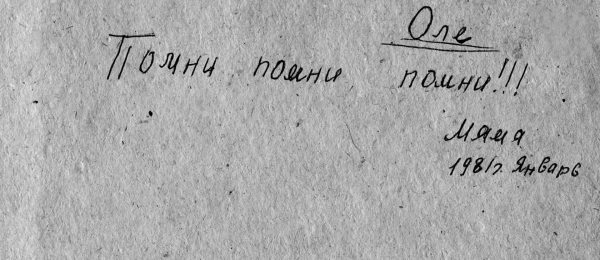 Оле
Помни помни помни!!!
Мама
1981г. Январь